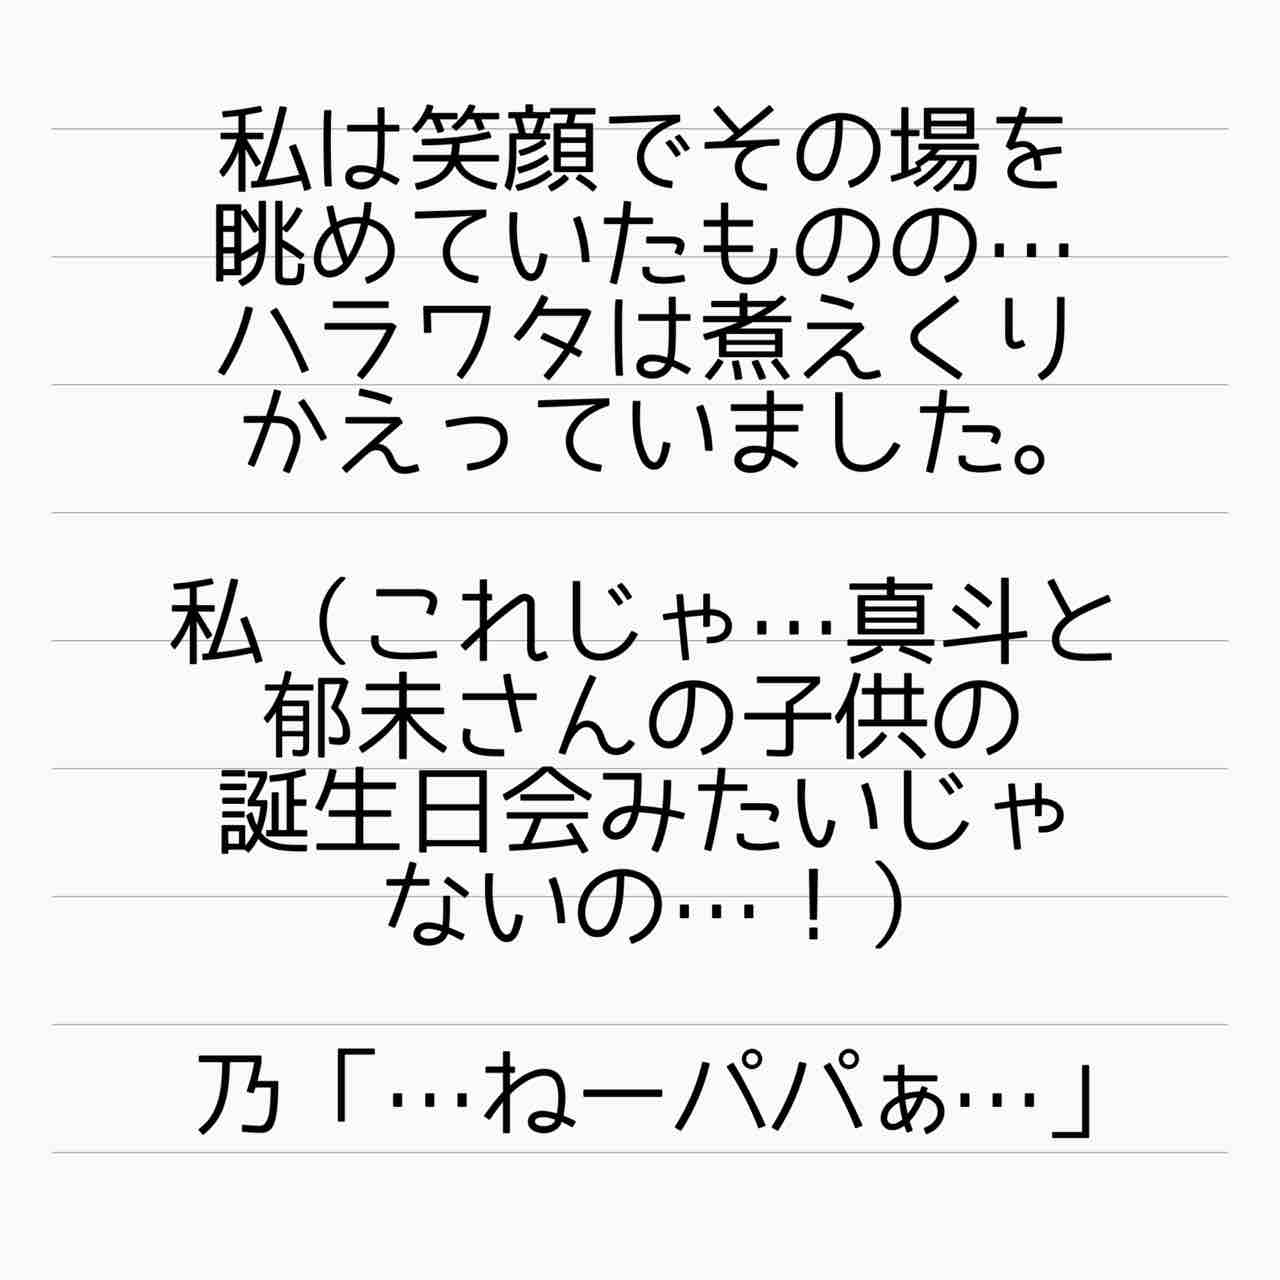 私は笑顔でその場を
眺めていたものの…
ハラワタは煮えくり
かえっていました。
私（これじゃ…真斗と
郁未さんの子供の
誕生日会みたいじゃ
ないの…！）
乃「…ねーパパぁ…」